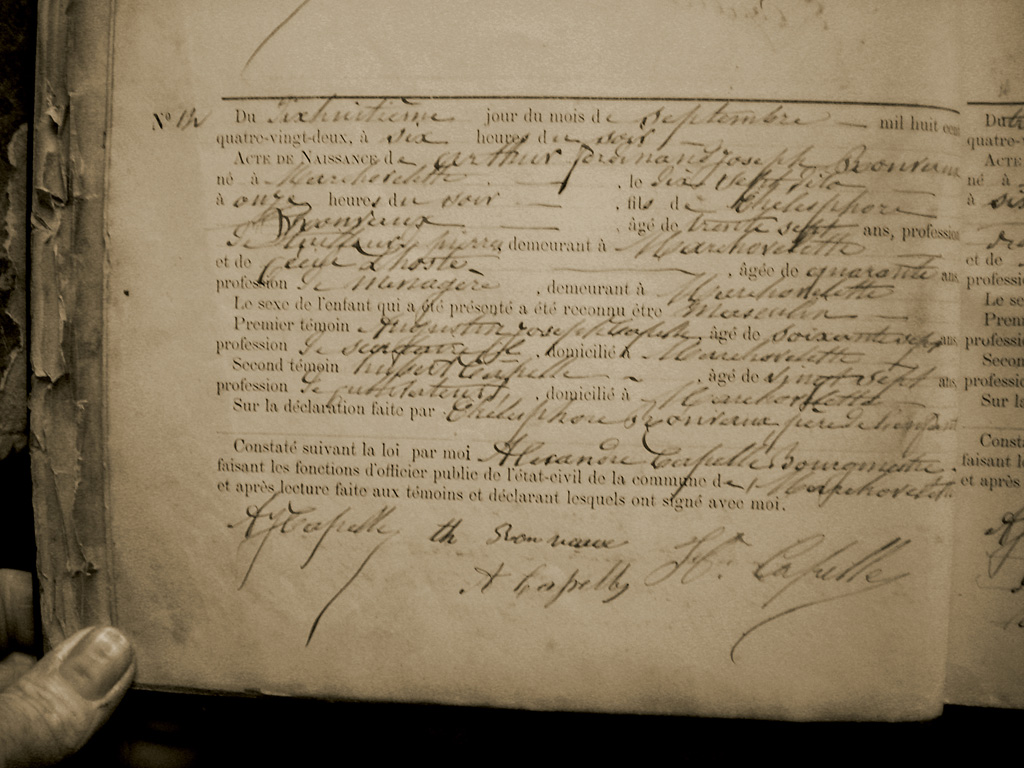 N° 12 Du Dixhuitième jour du mois de septembre mil huit cent
quatre-vingt-deux, à six heures du soir
ACTE DE NAISSANCE de Arthur ferdinand joseph Ronvaux
né à Marchovelette , le dix sept dito
à onze heures du soir , fils de Thélesphore
Ronvaux , âgé de trente sept ans, profession
de pierre demeurant à Marchovelette
et de Lhoste , âgée de quarante ans,
profession de ménagère , demeurant à Marchovelette
Le sexe de l'enfant qui a été présenté a été reconnu être Masculin
Premier témoin Augustin joseph Capelle , âgé de soixante sept ans,
profession de , domicilié à Marchovelette
Second témoin hubert Capelle , âgé de vingt sept ans,
profession de cultivateur , domicilié à Marchovelette
Sur la déclaration faite par Thélesphore Ronvaux père de l'enfant
Constaté suivant la loi par moi Alexandre Capelle Bourgmestre
faisant les fonctions d'officier public de l'état-civil de la commune de Marchovelette
et après lecture faite aux témoins et déclarant lesquels ont signé avec moi.
AJ Capelle th Ronvaux
A Capelle Ht. Capelle
Du
quatre-
ACTE
né à
à six
et de
profession
Le se
Prem
profession
Second
profession
Sur la
Consta
faisant l
et après